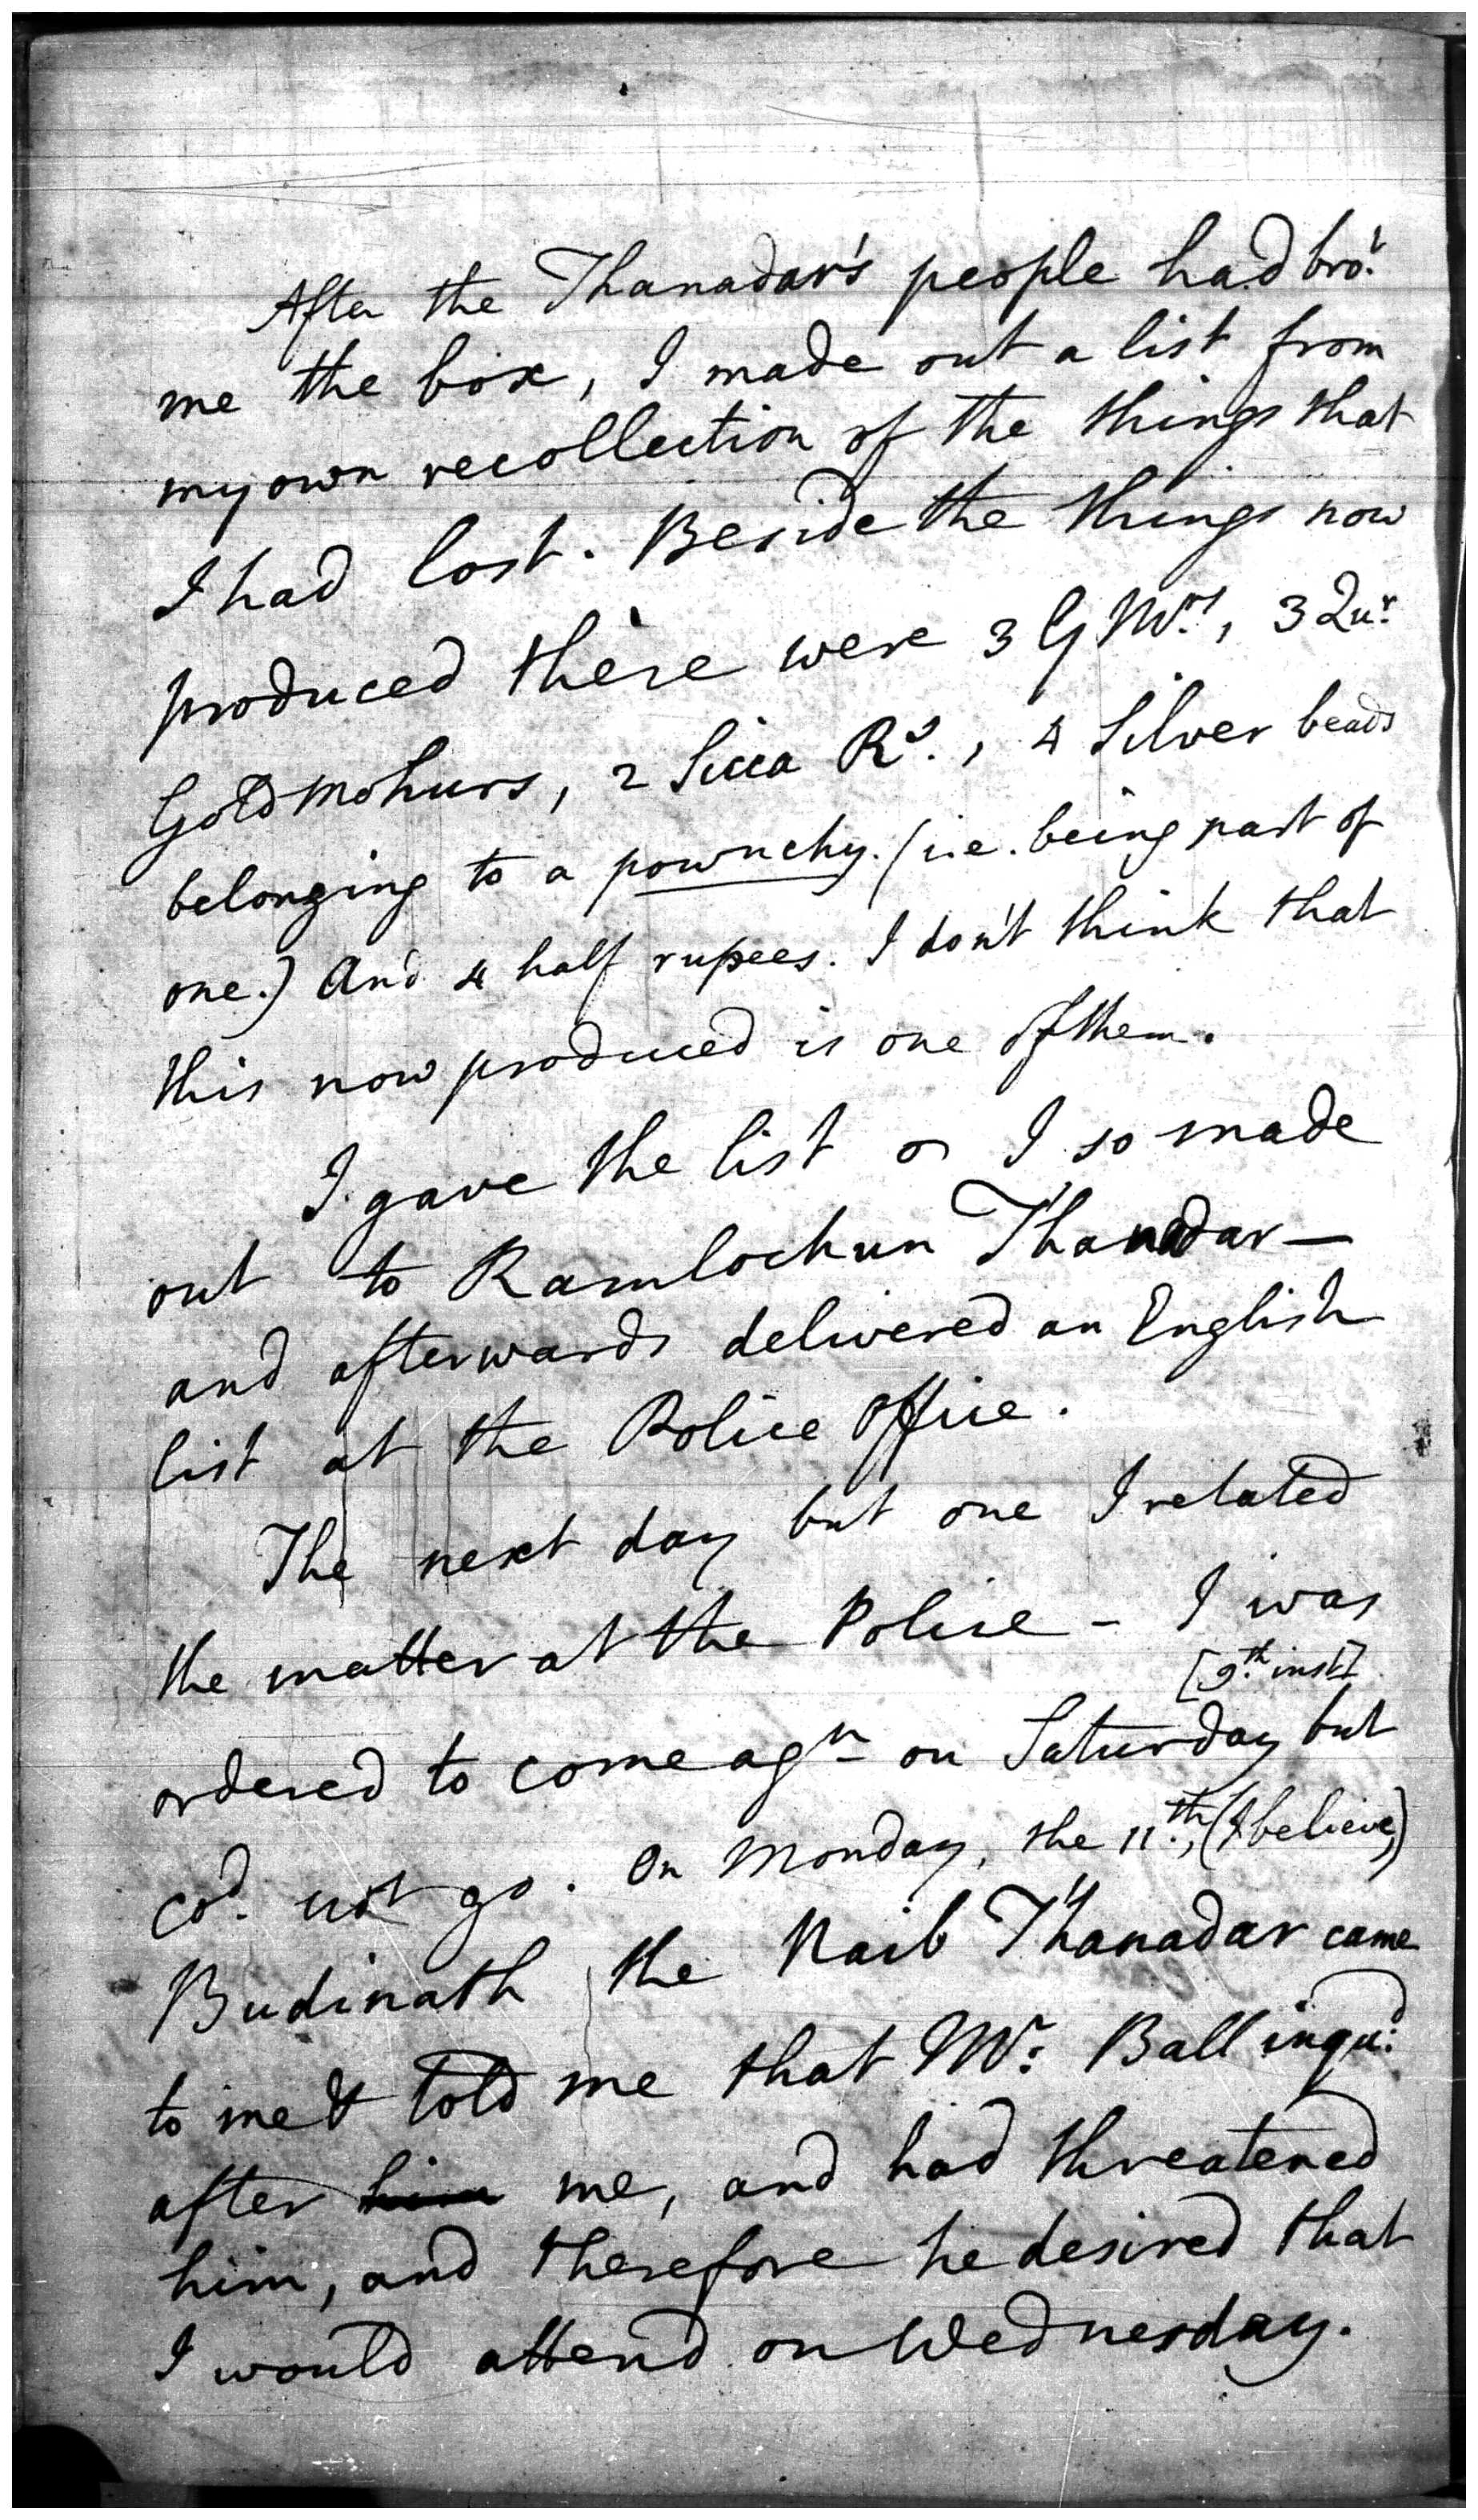 After the Thanadar's people had bro.t
me the box, I made out a list from
my own recollection of the things that
I had lost. Beside the things now
produced there were 3 G Mrs., 3 Qur.
Gold mohurs, 2 Sicca Rs., 4 Silver beads
belonging to a pownchy. (i.e. being part of
one.) And 4 half rupees. I don't think that
this now produced is one of them.
I gave the list I so made
out to Ramlochun Thanadar—
and afterwards delivered an English
list at the Police Office.
The next day but one I related
the matter at the Police - I was
[9.th inst]
ordered to come agn on Saturday but
cod. not go. On Monday, the 11.th, (I believe,)
Budinath the Naib Thanadar came
to me & told me that Mr. Ball inqu.d
after him me, and had threatened
him, and therefore he desired that
I would attend on Wednesday.